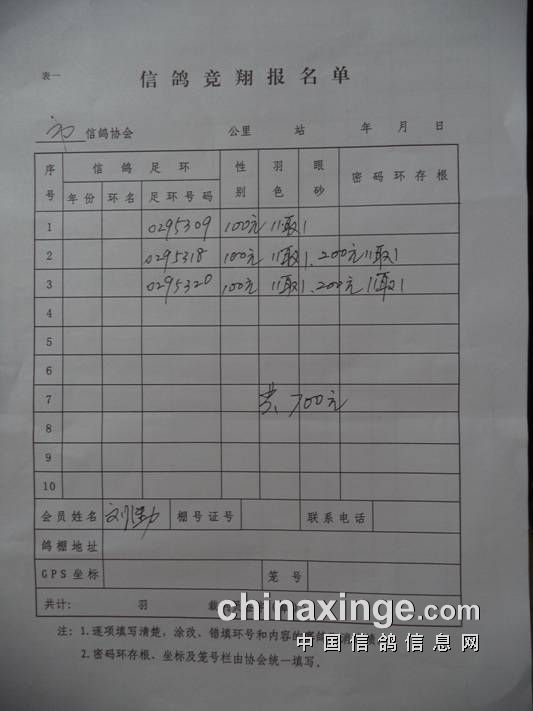 表一
信鸽竞翔报名单
信鸽协会 公里 站 年 月 日
序号 信鸽足环 性别 羽色 眼砂 密码环存根
年份 环名 足环号码
1 0295309 100元 11取1
2 0295318 100元 11取1. 200元11取1
3 0295320 100元 11取1. 200元11取1
4
5
6
7 共700元
8
9
10
会员姓名 棚号证号 联系电话
鸽棚地址
GPS坐标 笼号
共计: 羽
chinaxinge.com
注: 1.逐项填写清楚,涂改、错填环号和内容的
中国信鸽信息网
2.密码环存根、坐标及笼号栏由协会统一填写.